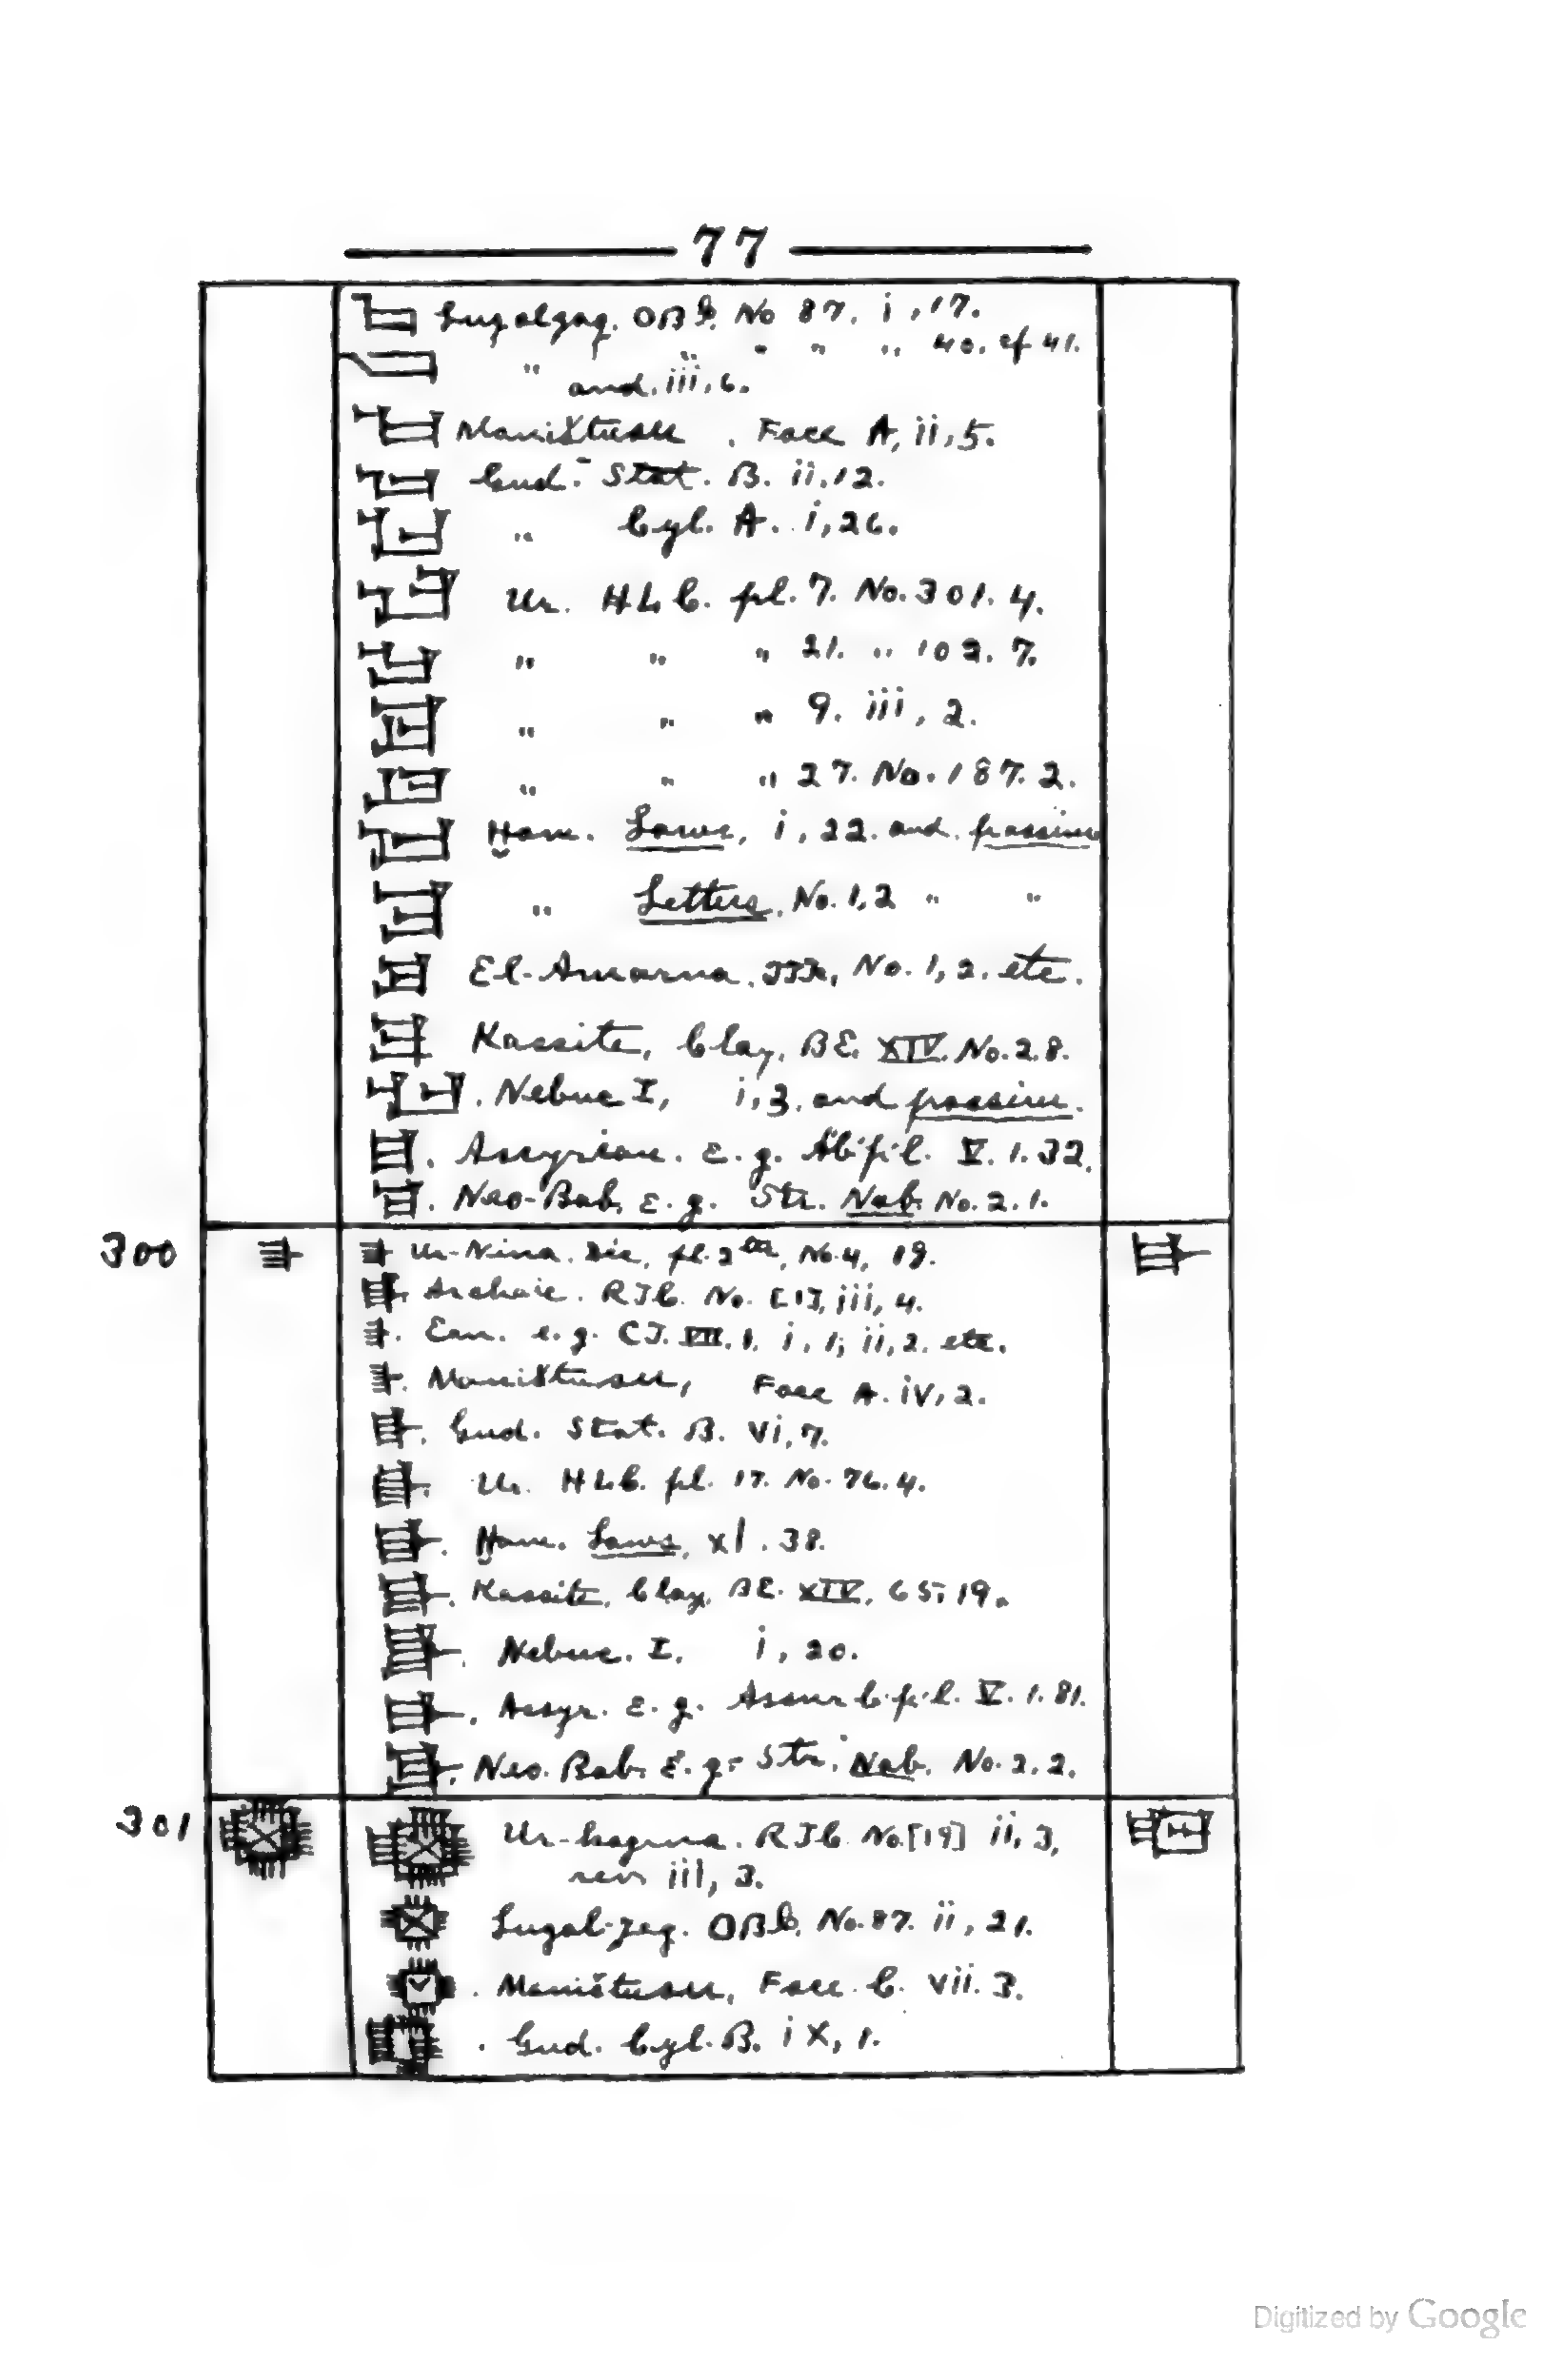 77
Lugalzag. OBI. No 87. i, 17.
" " " " " 40. cf 41.
and. iii, 6.
Maništusu. Face A, ii, 5.
Gud. Stat. B. ii, 12.
" Cyl. A. i, 26.
Ur. HLC. pl. 7. No. 301. 4.
" " " 21. " 102. 7.
" " " 9. iii, 2.
" " " 27. No. 187. 2.
Ḫam. Laws, i, 22. and. passim
" Letters, No. 1, 2 " "
El-Amarna. No. 1, 2. etc.
Kassite, Clay, BE. XIV. No. 2. 8.
Nebuc I, i, 3. and passim.
Assyrian. E.g. V. 1. 32.
Neo-Bab. E.g. Str. Nab. No. 2. 1.
300 Ur-Nina. Déc, pl. 2 ter, No. 4, 19.
Archaic. RTC. No. [1], iii, 4.
Ean. e.g. CT. VII. 1. i, 1; ii, 2. etc.
Maništusu, Face A. iv, 2.
Gud. Stat. B. vi, 7.
Ur. HLC. pl. 17. No. 76. 4.
Ḫam. Laws, xl. 38.
Kassite, Clay, BE. XIV, 65; 19.
Nebuc. I. i, 20.
Assyr. E.g. Assurb.p.l. V. 1. 81.
Neo. Bab. E.g. Str. Nab. No. 2. 2.
301 Ur-kagina. RTC. No. [19] ii, 3,
rev iii, 3.
Lugal-zag. OBI. No. 87. ii, 21.
Maništusu, Face C. vii. 3.
Gud. Cyl. B. ix, 1.
Digitized by Google